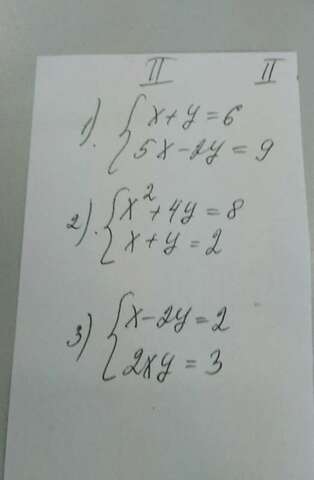 II II
1). { x + y = 6
5x - 2y = 9
2). { x² + 4y = 8
x + y = 2
3) { x - 2y = 2
2xy = 3